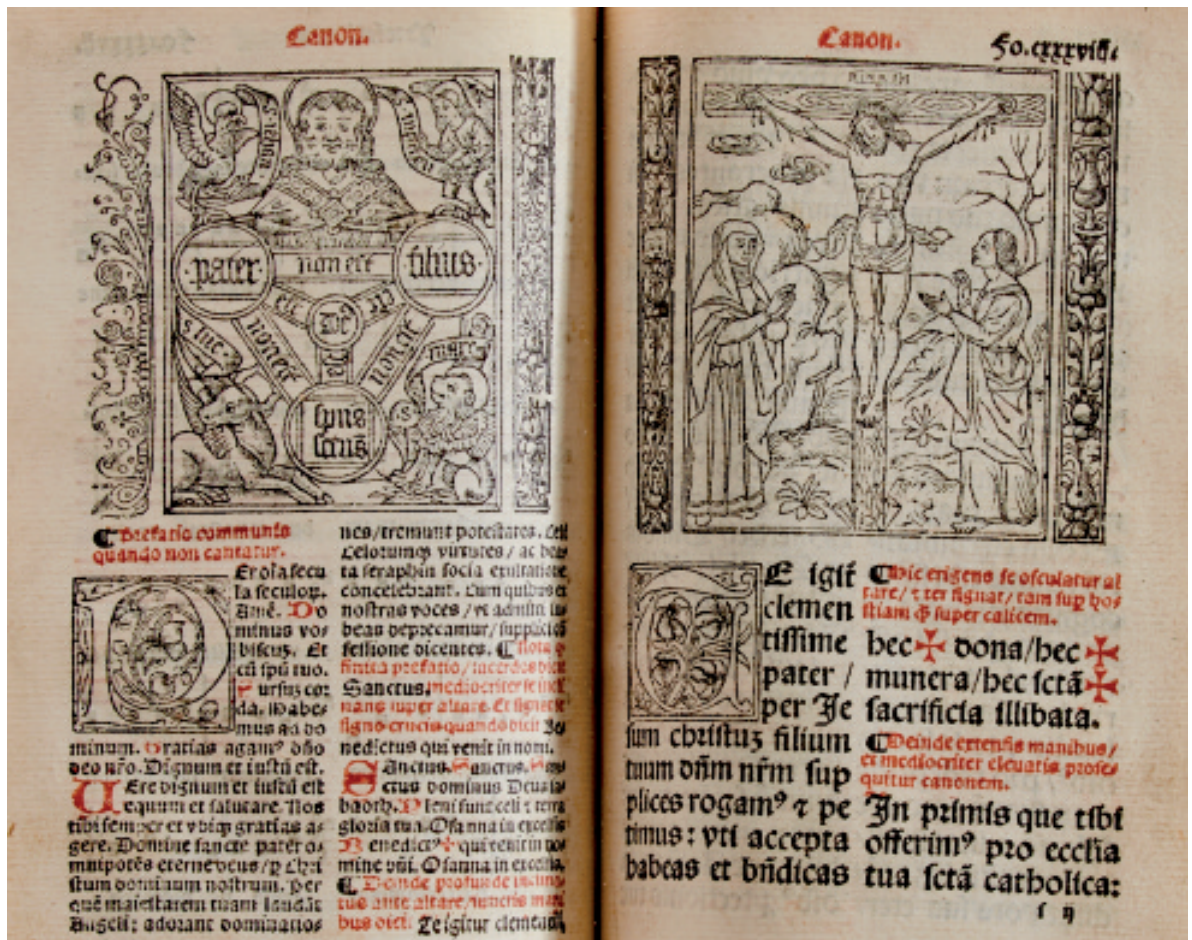 Canon.
s. iohã.
pater
non est
filius
est
De⁹
est
non est
non est
s. luc
s. marc⁹
spũs
sctũs
¶ Prefatio communis
quando non cantatur.
PEr oĩa secu
la seculoꝝ.
Amẽ. Do
minus vos
biscuꝫ. Et
cũ spũ tuo.
Sursuꝫ cor
da. Habes
mus ad do
minum. Gratias agam⁹ dño
deo nr̃o. Dignum et iustũ est.
VEre dignum et iustũ est
equum et salutare. Nos
tibi semper et vbiqꝫ gratias a⸗
gere. Domine sancte pater o⸗
mnipotẽs eterne deus / ꝑ Chri
stum dominum nostrum. Per
quẽ maiestatem tuam laudãt
Angeli: adorant dominatio⸗
nes / tremunt potestates. Celi
Celorumqꝫ virtutes / ac bea
ta seraphin socia exultatione
concelebrant. Cum quibus et
nostras voces / vt admitti iu⸗
beas deprecamur / supplici
fessione dicentes. ¶ Nota ꝙ
finita prefatio / sacerdos dicit
Sanctus. mediocriter se incli
nans super altare. Et signet se
signo crucis quando dicit Be
nedictus qui venit in nomi.
SAnctus. Sanctus. San
ctus dominus Deus sa
baoth. Pleni sunt celi ⁊ terra
gloria tua. Osanna in excelsis
Benedict⁹ ✠ qui venit in no⸗
mine dñi. Osanna in excelsis.
¶ Deinde profunde inclina
tus ante altare / iunctis mani
bus dicit. Te igitur clementi.
Canon.
Fo. cxxxviij.
TE igit̃
clemen
tissime
pater /
per Je
sum christuꝫ filium
tuum dñm nr̃m sup
plices rogam⁹ ⁊ pe
timus: vti accepta
habeas et bñdicas
¶ Hic erigens se osculatur al
tare / ⁊ ter signat / tam suꝑ hos
tiam ꝙ̃ super calicem.
hec ✠ dona / hec ✠
munera / hec sctã ✠
sacrificia illibata.
¶ Deinde extensis manibus /
et mediocriter eleuatis prose⸗
quitur canonem.
In primis que tibi
offerim⁹ pro ecclia
tua sctã catholica:
s ij